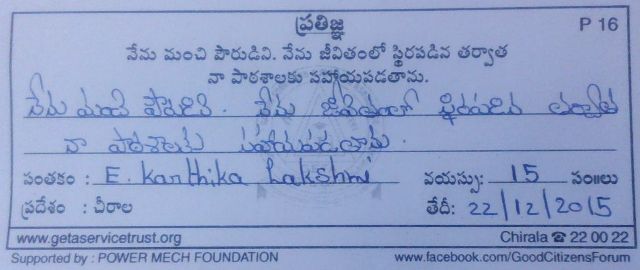 ప్రతిజ్ఞ
P 16
నేను మంచి పౌరుడిని. నేను జీవితంలో స్థిరపడిన తర్వాత
నా పాఠశాలకు సహాయపడతాను.
నేను మంచి పౌరుడిని. నేను జీవితంలో స్థిరపడిన తర్వాత
నా పాఠశాలకు సహాయపడతాను.
సంతకం : E. Karthika Lakshmi వయస్సు: 15 సం॥లు
ప్రదేశం : చీరాల తేదీ: 22/12/2015
www.getaservicetrust.org Chirala ☎ 22 00 22
Supported by : POWER MECH FOUNDATION www.facebook.com/GoodCitizensForum